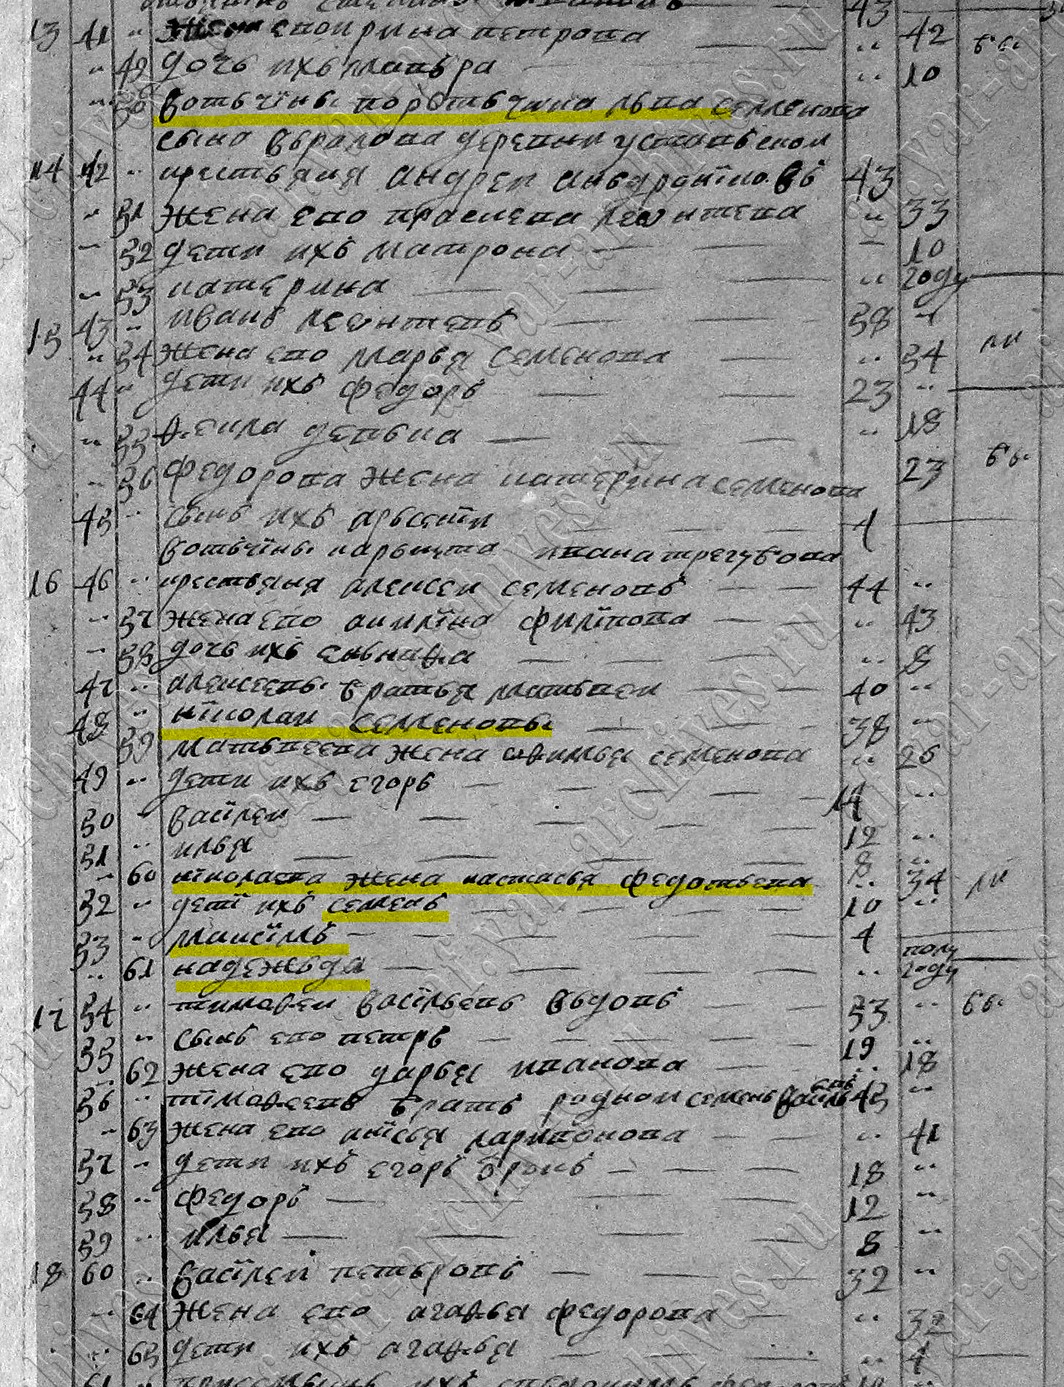 43
13 41 " жена его ирина петрова " 42 бы
" 49 дочь ихъ мавра " 10
" 50 вотчины порутчика льва семенова
сына вералова деревни усланской
14 42 " крестьяня андреи анъдроніковъ 43
" 51 жена его прасковья леонтева " 33
" 52 дети ихъ матрона — 10
" 53 катерина " году
15 43 " иванъ леонтевъ 58 " ли
" 54 жена его марья семенова " 54
44 " дети ихъ федоръ 23 "
" 55 фекла девька " 18
" 56 федорова жена катерина семенова 23 бы
45 " сынъ ихъ арьсентии 1
вотчины карьнета ивана трегубова
16 46 " крестьяна алексеи семеновъ 44 "
" 57 жена его акилїна филїпова " 43
" 58 дочь ихъ " 8
47 " алексеевы братья матьвеи 40 "
48 " нїколаи семеновы 38 "
" 59 матьвеева жена афимья семенова " 26
49 " дети ихъ егоръ 14 "
50 " васїлеи 12 "
51 " илья 8 "
" 60 нїколаева жена настасья федотьева " 34 ли
52 " детї ихъ семенъ 10 "
53 " максїмъ 4
" 61 надежьда " полу году
17 54 " тимофеи васїльевъ вьдовъ 53 " бы
55 " сынъ его петръ 19 "
62 жена его дарья иванова " 18
56 " тїмофеевъ братъ родной семенъ васильевъ 43 "
" 63 жена его анїсья ларивонова " 41
57 " дети ихъ егоръ 18 "
58 " федоръ 12 "
59 " илья 8 "
18 60 " васїлеи петьровъ 32 "
" 64 жена его агафья федорова " 32
" 65 дети ихъ агафья " 4
61 ихъ